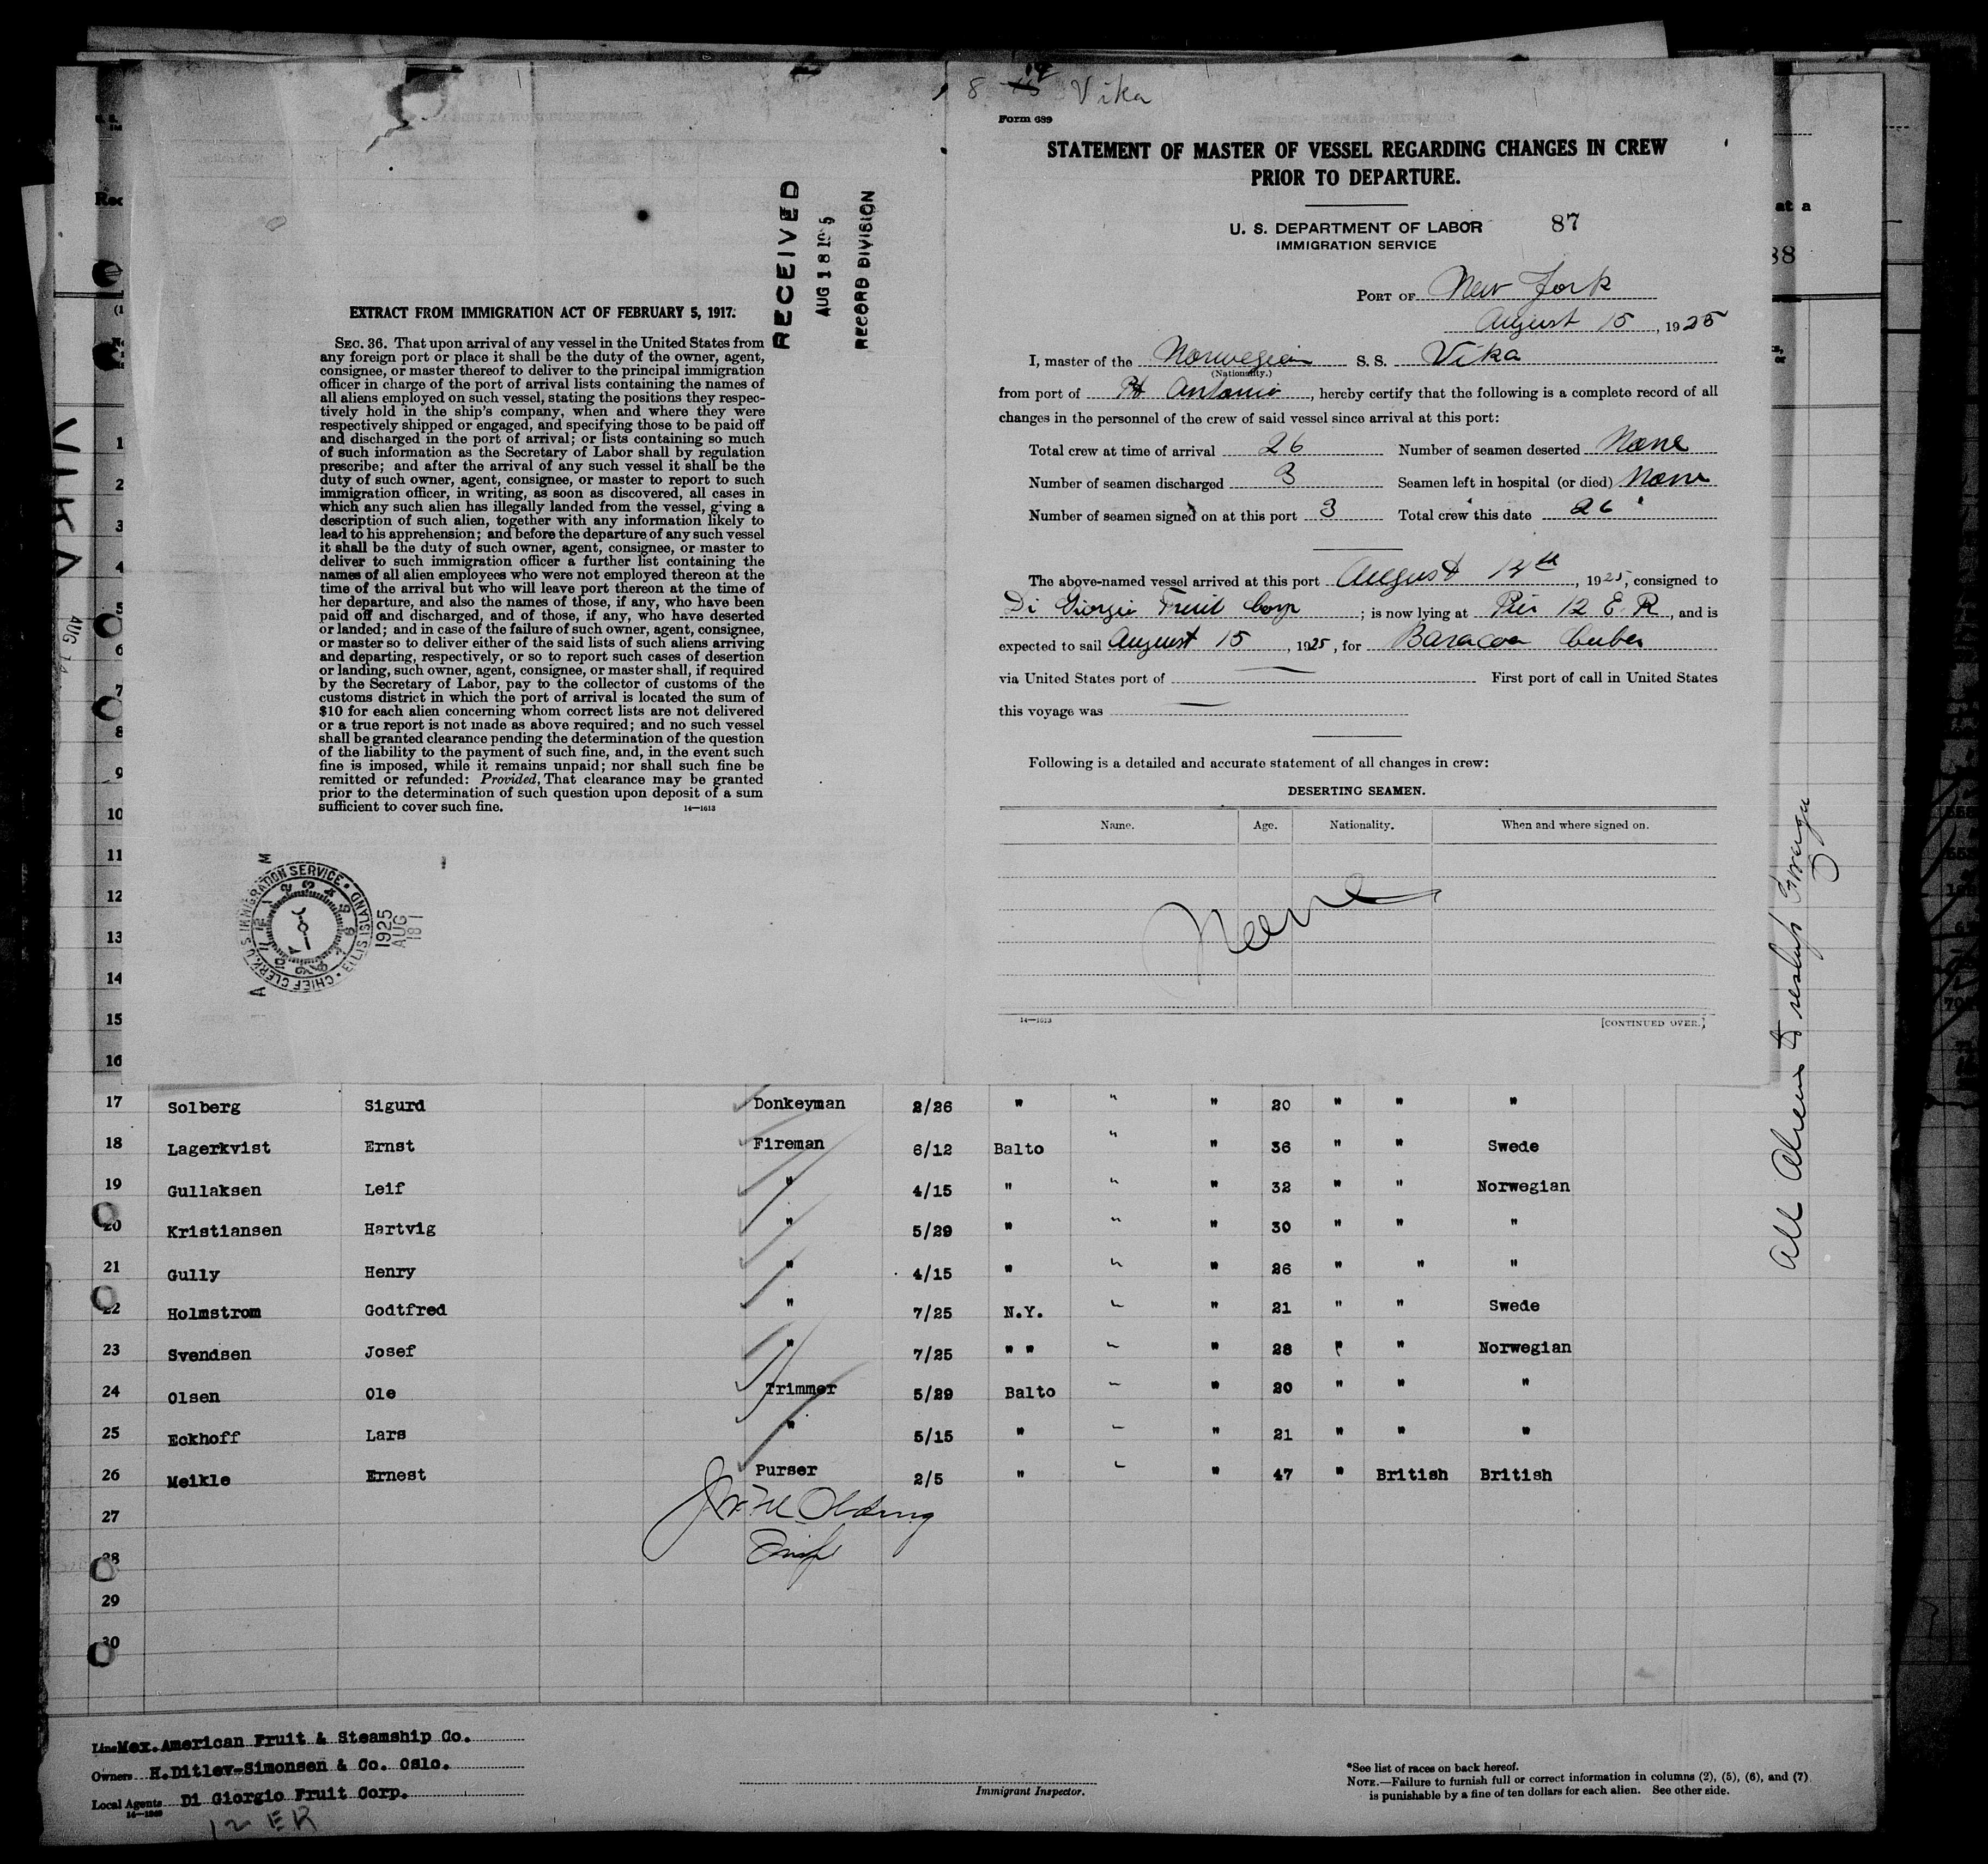 8 14 Vika
Form 689
STATEMENT OF MASTER OF VESSEL REGARDING CHANGES IN CREW
PRIOR TO DEPARTURE.
U. S. DEPARTMENT OF LABOR 87
IMMIGRATION SERVICE
PORT OF New York
August 15, 1925
I, master of the Norwegian S. S. Vika
(Nationality.)
from port of Pt Antonio, hereby certify that the following is a complete record of all
changes in the personnel of the crew of said vessel since arrival at this port:
Total crew at time of arrival 26 Number of seamen deserted None
Number of seamen discharged 3 Seamen left in hospital (or died) None
Number of seamen signed on at this port 3 Total crew this date 26
The above-named vessel arrived at this port August 14th, 1925, consigned to
Di Giorgio Fruit Corp; is now lying at Pier 12 E. R., and is
expected to sail August 15, 1925, for Baracoa Cuba
via United States port of — First port of call in United States
this voyage was —
Following is a detailed and accurate statement of all changes in crew:
DESERTING SEAMEN.
Name. Age. Nationality. When and where signed on.
None
14—1613 [CONTINUED OVER.]
RECEIVED
AUG 18 1925
RECORD DIVISION
EXTRACT FROM IMMIGRATION ACT OF FEBRUARY 5, 1917.
SEC. 36. That upon arrival of any vessel in the United States from
any foreign port or place it shall be the duty of the owner, agent,
consignee, or master thereof to deliver to the principal immigration
officer in charge of the port of arrival lists containing the names of
all aliens employed on such vessel, stating the positions they respec-
tively hold in the ship's company, when and where they were
respectively shipped or engaged, and specifying those to be paid off
and discharged in the port of arrival; or lists containing so much
of such information as the Secretary of Labor shall by regulation
prescribe; and after the arrival of any such vessel it shall be the
duty of such owner, agent, consignee, or master to report to such
immigration officer, in writing, as soon as discovered, all cases in
which any such alien has illegally landed from the vessel, giving a
description of such alien, together with any information likely to
lead to his apprehension; and before the departure of any such vessel
it shall be the duty of such owner, agent, consignee, or master to
deliver to such immigration officer a further list containing the
names of all alien employees who were not employed thereon at the
time of the arrival but who will leave port thereon at the time of
her departure, and also the names of those, if any, who have been
paid off and discharged, and of those, if any, who have deserted
or landed; and in case of the failure of such owner, agent, consignee,
or master so to deliver either of the said lists of such aliens arriving
and departing, respectively, or so to report such cases of desertion
or landing, such owner, agent, consignee, or master shall, if required
by the Secretary of Labor, pay to the collector of customs of the
customs district in which the port of arrival is located the sum of
$10 for each alien concerning whom correct lists are not delivered
or a true report is not made as above required; and no such vessel
shall be granted clearance pending the determination of the question
of the liability to the payment of such fine, and, in the event such
fine is imposed, while it remains unpaid; nor shall such fine be
remitted or refunded: Provided, That clearance may be granted
prior to the determination of such question upon deposit of a sum
sufficient to cover such fine. 14—1613
CHIEF CLERK, U.S. IMMIGRATION SERVICE • ELLIS ISLAND
1925
AUG
18
VIKA
AUG 14
1
2
3
4
5
6
7
8
9
10
11
12
13
14
15
16
17 Solberg Sigurd Donkeyman 2/26 " " " 20 " " "
18 Lagerkvist Ernst Fireman 6/12 Balto " " 36 " " Swede
19 Gullaksen Leif " 4/15 " " " 32 " " Norwegian
20 Kristiansen Hartvig " 5/29 " " " 30 " " "
21 Gully Henry " 4/15 " " " 26 " " "
22 Holmstrom Godtfred " 7/25 N.Y. " " 21 " " Swede
23 Svendsen Josef " 7/25 " " " " 28 " " Norwegian
24 Olsen Ole Trimmer 5/29 Balto " " 20 " " "
25 Eckhoff Lars " 5/15 " " " 21 " " "
26 Meikle Ernest Purser 2/5 " " " 47 " British British
27
28
29
30
All Aliens to reship Foreign
Line Mex. American Fruit & Steamship Co.
Owners H.Ditlev-Simonsen & Co. Oslo.
Local Agents Di Giorgio Fruit Corp.
14—1240
12 ER
Immigrant Inspector.
*See list of races on back hereof.
NOTE.—Failure to furnish full or correct information in columns (2), (5), (6), and (7)
is punishable by a fine of ten dollars for each alien. See other side.